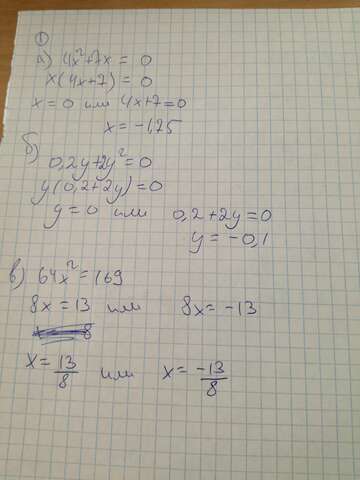 ①
а) 4x²+7x = 0
x(4x+7) = 0
x = 0 или 4x+7=0
x = -1,25
б) 0,2y+2y²=0
y(0,2+2y)=0
y = 0 или 0,2+2y=0
y = -0,1
в) 64x²=169
8x = 13 или 8x = -13
x = 13/8 или x = -13/8